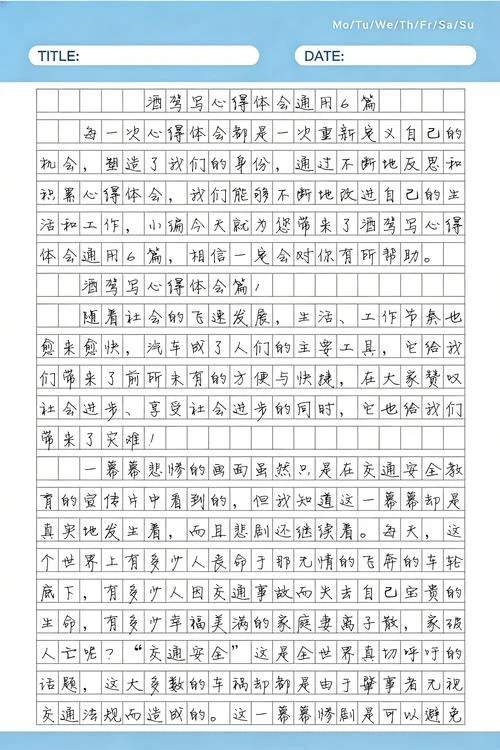 Mo/Tu/We/Th/Fr/Sa/Su
TITLE: DATE:
酒驾写心得体会通用6篇
每一次心得体会都是一次重新定义自己的
机会，塑造了我们的身份，通过不断地反思和
积累心得体会，我们能够不断地改进自己的生
活和工作，小编今天就为您带来了酒驾写心得
体会通用6篇，相信一定会对你有所帮助。
酒驾写心得体会篇1
随着社会的飞速发展，生活、工作节奏也
愈来愈快，汽车成了人们的主要工具，它给我
们带来了前所未有的方便与快捷，在大家赞叹
社会进步、享受社会进步的同时，它也给我们
带来了灾难！
一幕幕悲惨的画面虽然只是在交通安全教
育的宣传片中看到的，但我知道这一幕幕却是
真实地发生着，而且悲剧还继续着。每天，这
个世界上有多少人丧命于那无情的飞奔的车轮
底下，有多少人因交通事故而失去自己宝贵的
生命，有多少幸福美满的家庭妻离子散，家破
人亡呢？“交通安全”这是全世界真切呼吁的
话题，这大多数的车祸却都是由于肇事者无视
交通法规而造成的。这一幕幕惨剧是可以避免